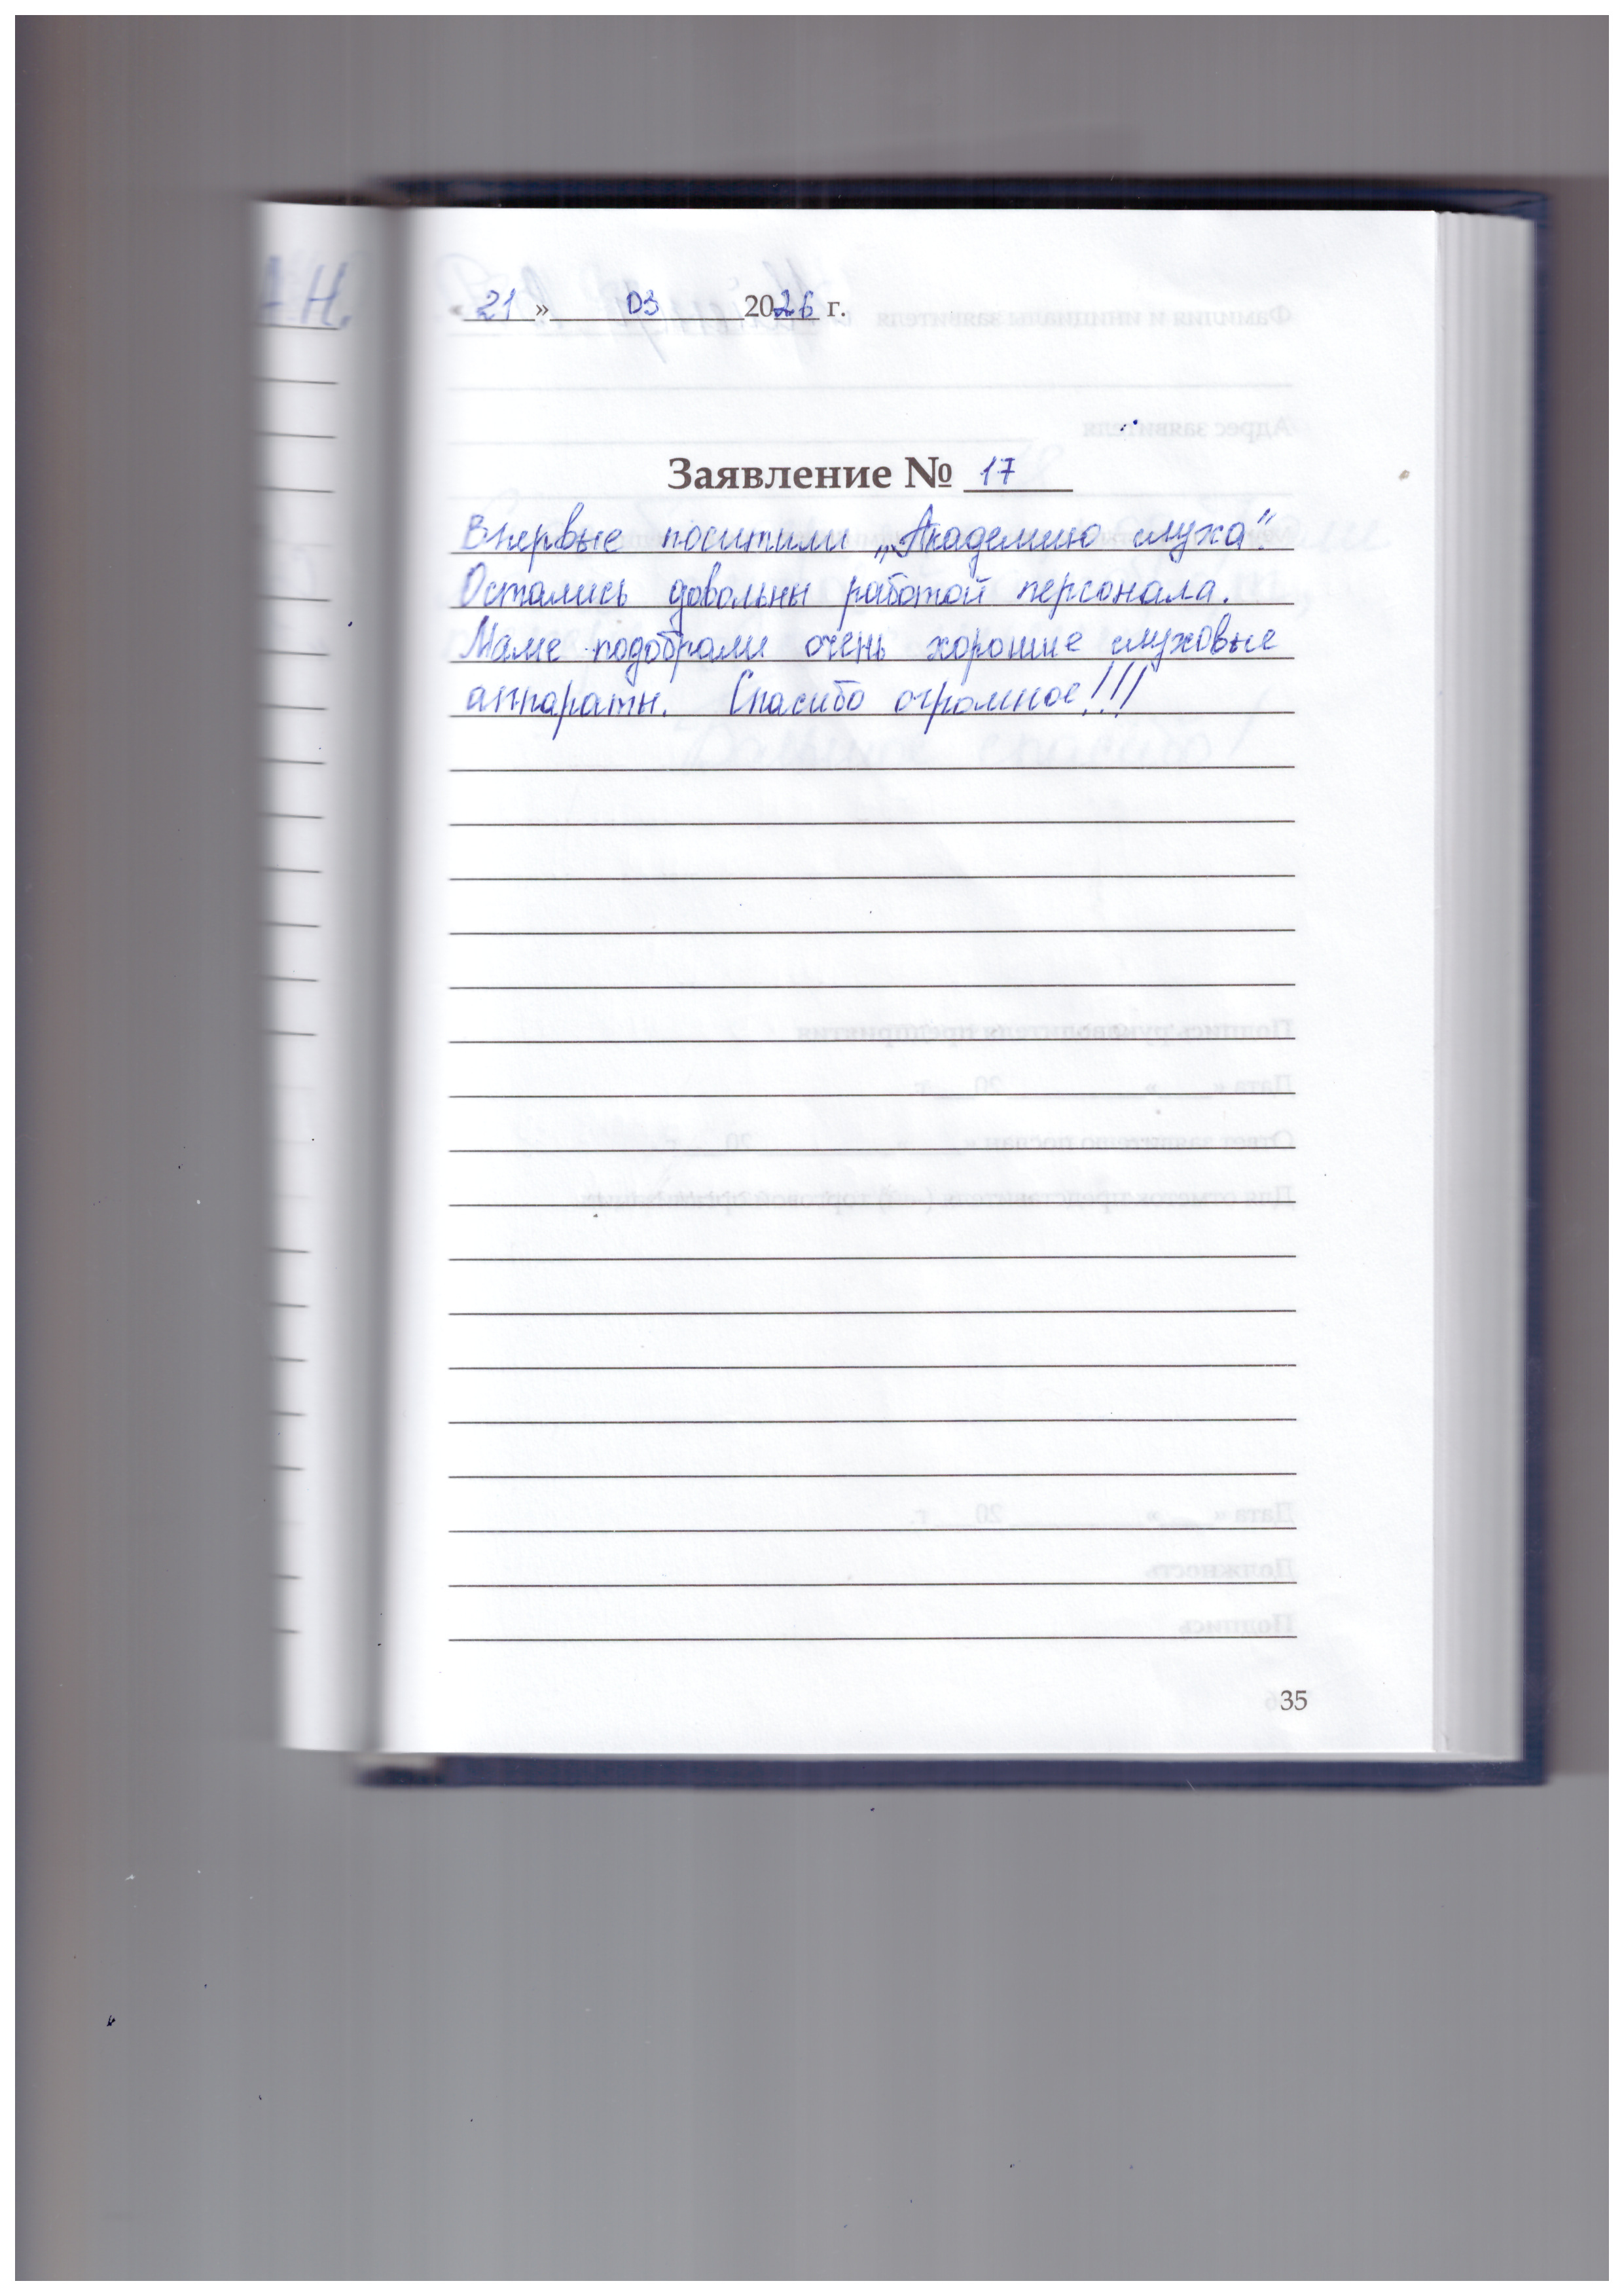 А Н.
« 21 » 03 2026 г.
Заявление № 17
Впервые поситили „Академию слуха".
Остались довольны работой персонала.
Маме подобрали очень хорошие слуховые
аппараты. Спасибо огромное!!!
35